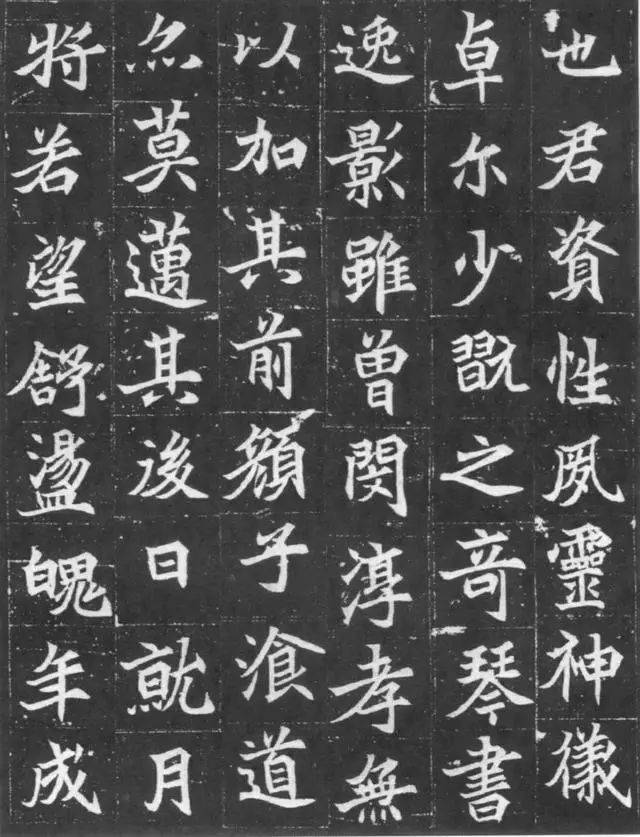 也君資性夙靈神儀
卓尔少翫之竒琴書
逸影雖曾閔淳孝無
以加其前顏子湌道
亦莫邁其後日就月
將若望舒盪魄年成